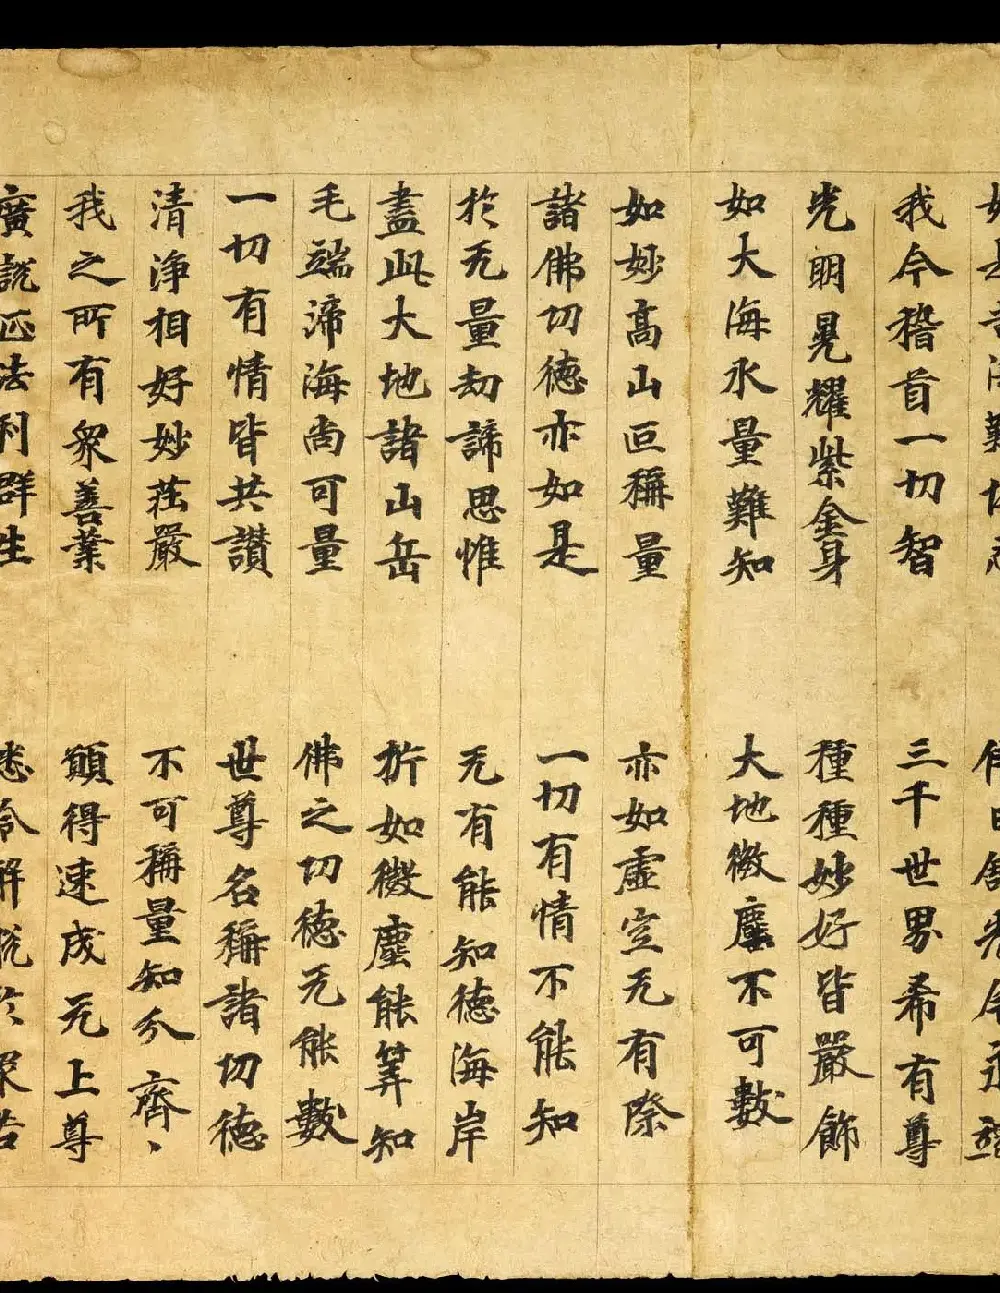 如是苦海難堪忍　佛日舒光令永竭
我今稽首一切智　三千世界希有尊
光明晃耀紫金身　種種妙好皆嚴飾
如大海水量難知　大地微塵不可數
如妙高山叵稱量　亦如虛空无有際
諸佛㓛德亦如是　一切有情不能知
於无量劫諦思惟　无有能知德海岸
盡此大地諸山岳　析如微塵能筭知
毛端渧海尚可量　佛之㓛德无能數
一切有情皆共讚　世尊名稱諸㓛德
清淨相好妙莊嚴　不可稱量知分齊、
我之所有眾善業　願得速成无上尊
廣說正法利群生　悉令解脫於眾苦